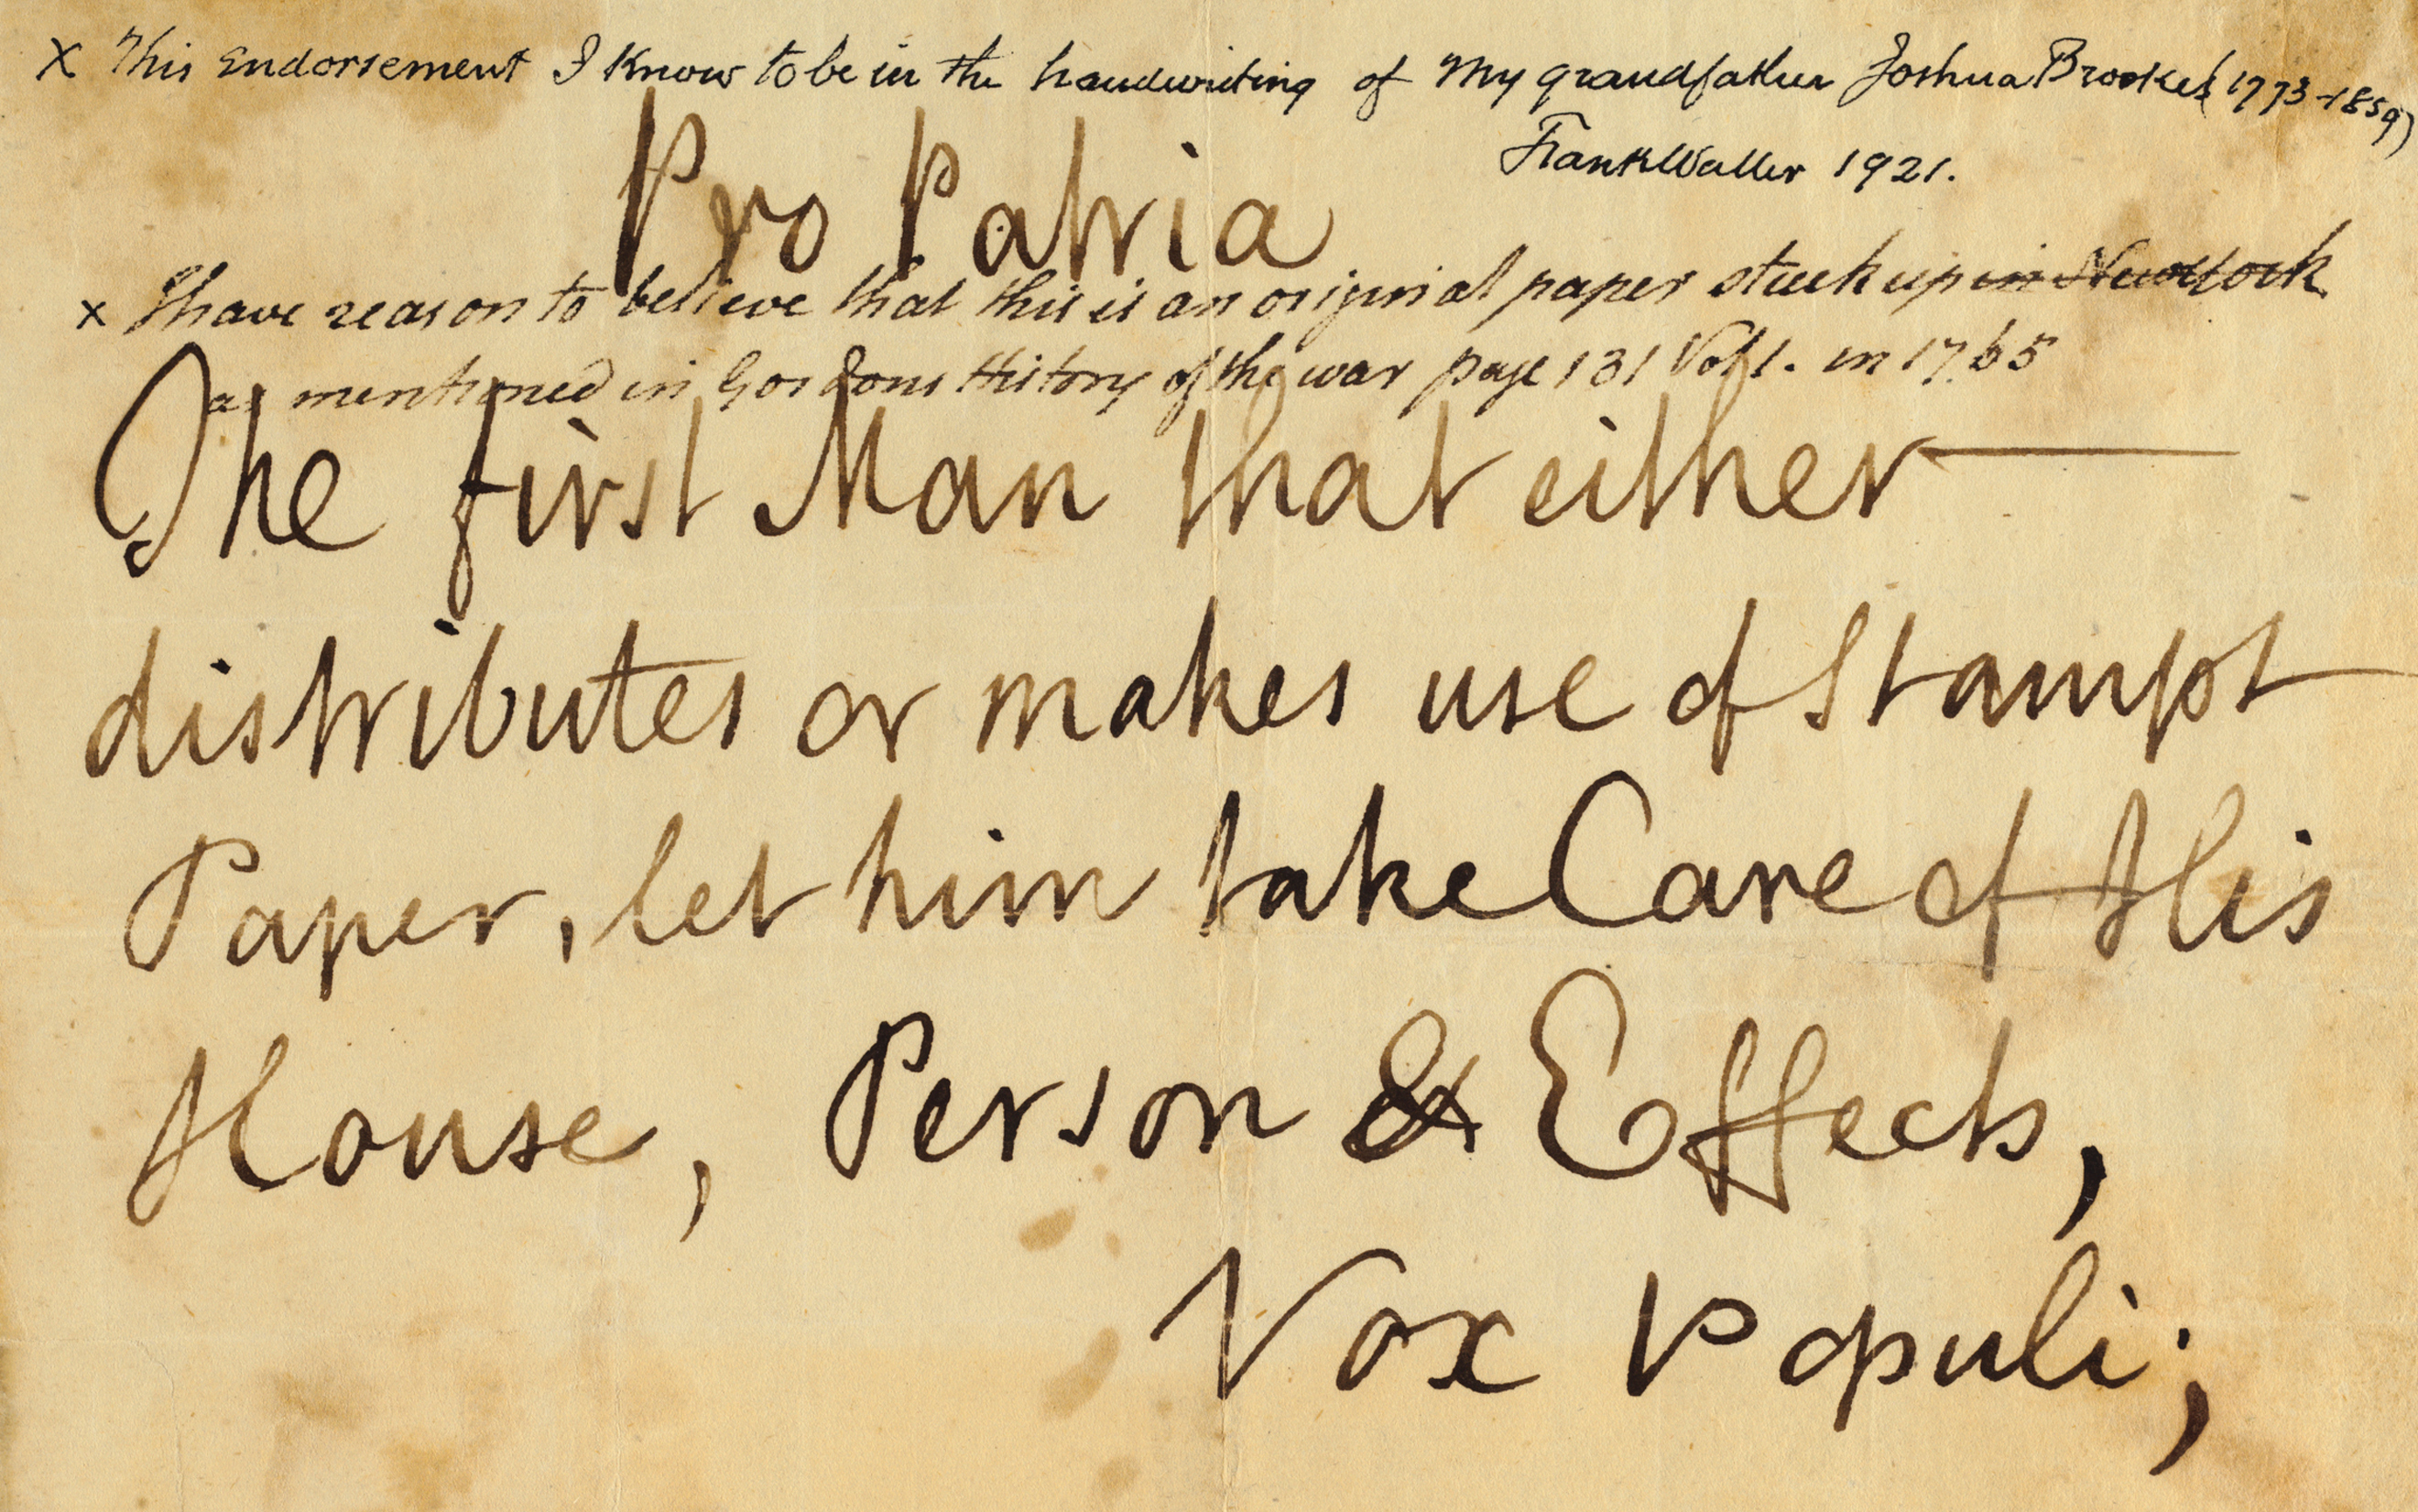 X This Endorsement I Know to be in the handwriting of My grandfather Joshua Brookes (1773-1859)
Frank Waller 1921.
Pro Patria
x I have reason to believe that this is an original paper stuck up in New York
as mentioned in Gordons History of the war page 131 Vol 1. in 1765
The first Man that either
distributes or makes use of Stampt
Paper, let him take Care of His
House, Person & Effects,
Vox Populi;